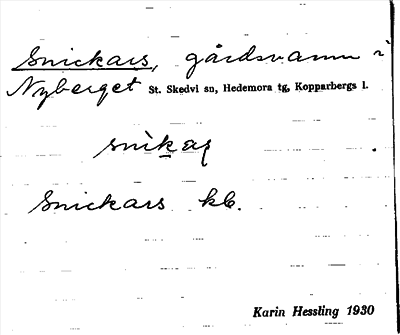 Snickars, gårdsnamn i
Nyberget St. Skedvi sn, Hedemora tg, Kopparbergs l.
snikaʂ
Snickars kb.
Karin Hessling 1930